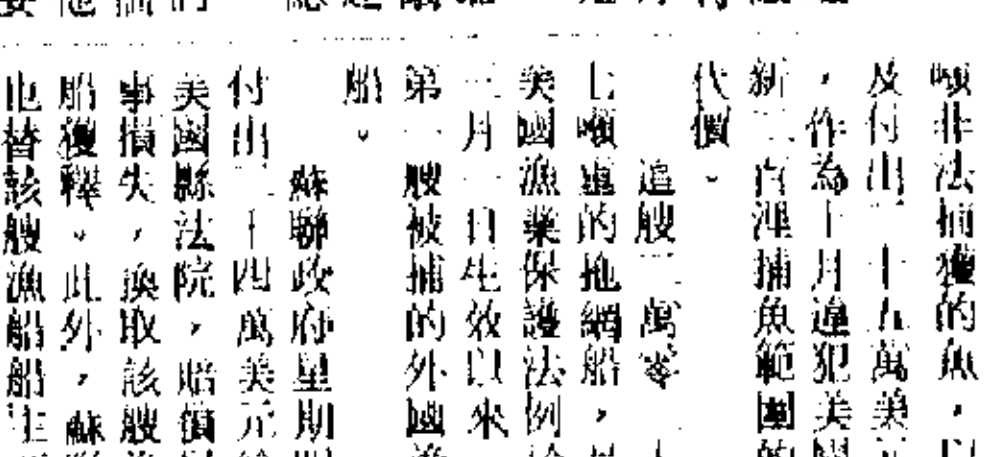 噸非法捕獲的魚，以
及付出二十五萬美
，作為十月違犯美國
新二百浬捕魚範圍的
代價。
這艘二萬零
七噸重的拖網船，
美國漁業保護法例
三月一日生效以來
第一艘被捕的外國漁
船。
蘇聯政府星期
付出二十四萬美元
美國縣法院，賠償
事損失，換取該艘
船獲釋。此外，蘇
也替該艘漁船船主